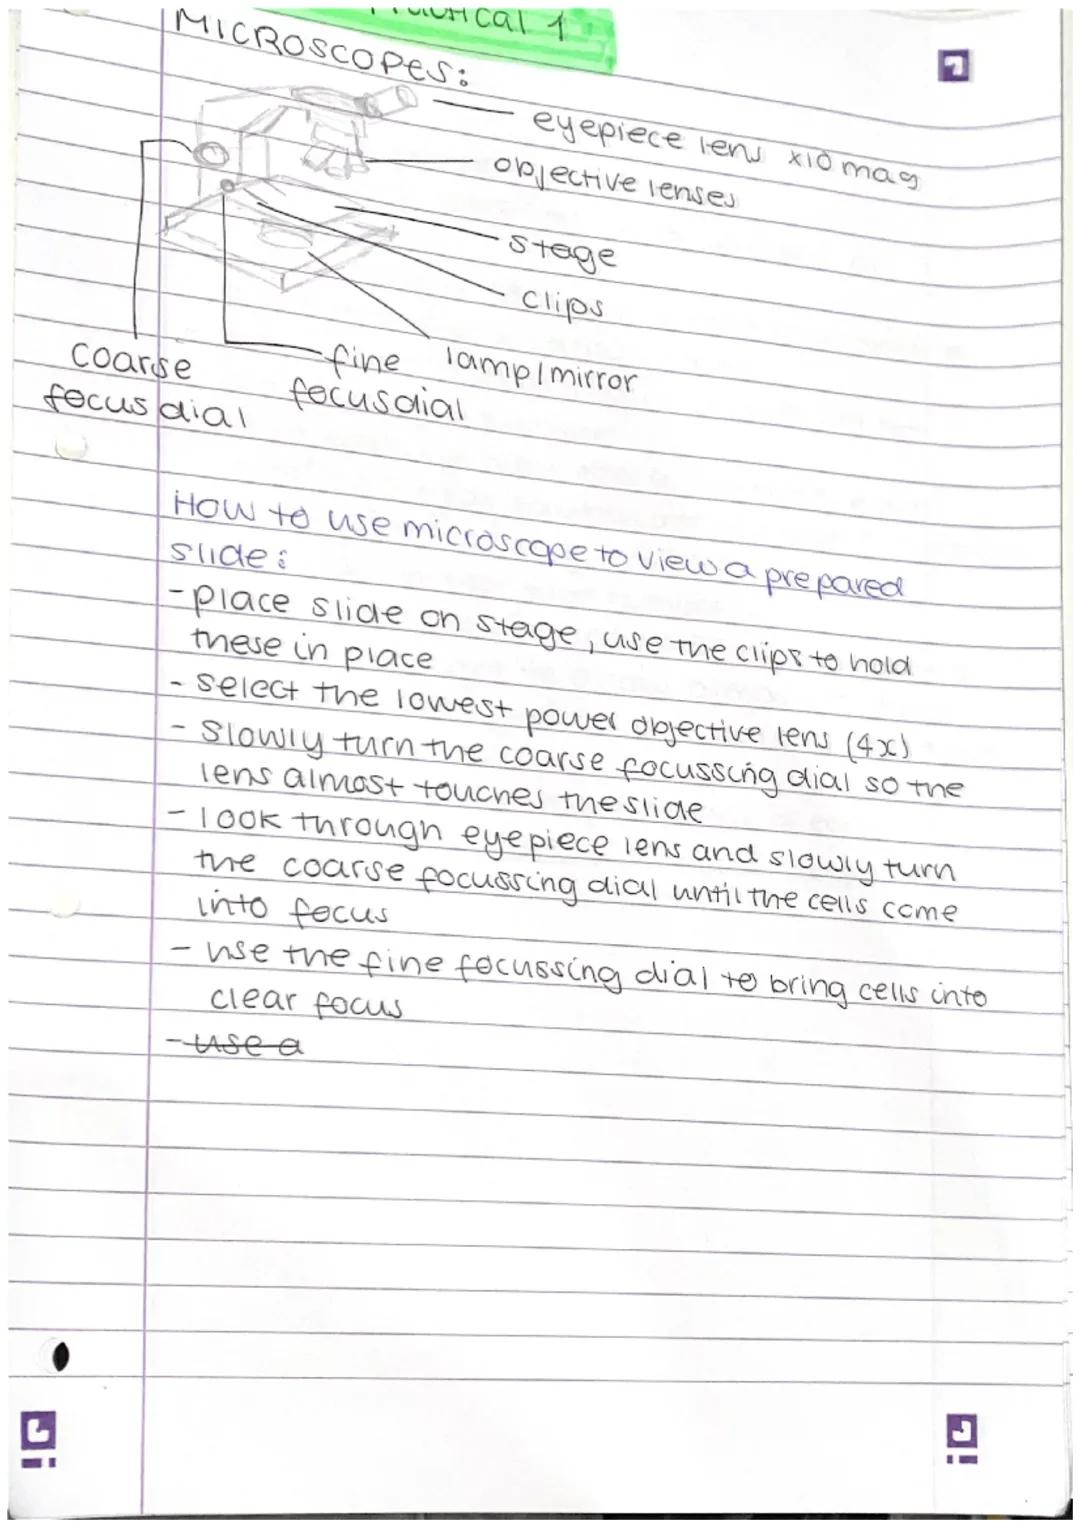 Practical 1
MICROSCOPES:
eyepiece lens x10 mag
objective lenses
stage
clips
lamp/mirror
fine
focus dial
coarse
focus dial
HOW to use microscope to view a prepared
slide:
- place slide on stage, use the clips to hold
these in place
- select the lowest power objective lens (4x)
- Slowly turn the coarse focussing dial so the
lens almost touches the slide
- look through eyepiece lens and slowly turn
the coarse focussing dial until the cells come
into focus
- use the fine focussing dial to bring cells into
clear focus
- use a